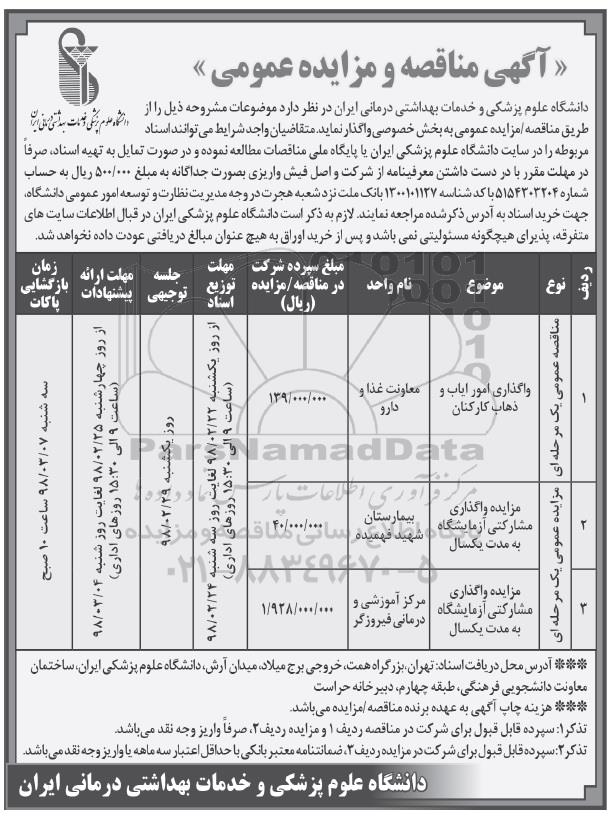 « آگهی مناقصه و مزایده عمومی »
دانشگاه علوم پزشکی و خدمات بهداشتی درمانی ایران
دانشگاه علوم پزشکی و خدمات بهداشتی درمانی ایران در نظر دارد موضوعات مشروحه ذیل را از
طریق مناقصه/مزایده عمومی به بخش خصوصی واگذار نماید. متقاضیان واجد شرایط می توانند اسناد
مربوطه را در سایت دانشگاه علوم پزشکی ایران یا پایگاه ملی مناقصات مطالعه نموده و در صورت تمایل به تهیه اسناد، صرفاً
در مهلت مقرر با در دست داشتن معرفینامه از شرکت و اصل فیش واریزی بصورت جداگانه به مبلغ ۵۰۰/۰۰۰ ریال به حساب
شماره ۵۱۵۴۳۰۳۲۰۴ با کد شناسه ۱۳۰۰۱۰۱۱۲۷ بانک ملت نزد شعبه هجرت در وجه مدیریت نظارت و توسعه امور عمومی دانشگاه،
جهت خرید اسناد به آدرس ذکر شده مراجعه نمایند. لازم به ذکر است دانشگاه علوم پزشکی ایران در قبال اطلاعات سایت های
متفرقه، پذیرای هیچگونه مسئولیتی نمی باشد و پس از خرید اوراق به هیچ عنوان مبالغ دریافتی عودت داده نخواهد شد.
ردیف
نوع
موضوع
نام واحد
مبلغ سپرده شرکت در مناقصه/مزایده (ریال)
مهلت توزیع اسناد
جلسه توجیهی
مهلت ارائه پیشنهادات
زمان بازگشایی پاکات
۱
مناقصه عمومی یک مرحله ای
واگذاری امور ایاب و
ذهاب کارکنان
معاونت غذا و
دارو
۱۳۹/۰۰۰/۰۰۰
از روز یکشنبه ۹۸/۰۲/۲۲ لغایت روز سه شنبه ۹۸/۰۲/۲۴
(ساعت ۹ الی ۱۵:۳۰ روزهای اداری)
روز یکشنبه ۹۸/۰۲/۲۹
از روز چهارشنبه ۹۸/۰۲/۲۵ لغایت روز شنبه ۹۸/۰۳/۰۴
(ساعت ۹ الی ۱۵:۳۰ روزهای اداری)
سه شنبه ۹۸/۰۳/۰۷ ساعت ۱۰ صبح
۲
مزایده عمومی یک مرحله ای
مزایده واگذاری
مشارکتی آزمایشگاه
به مدت یکسال
بیمارستان
شهید فهمیده
۴۰/۰۰۰/۰۰۰
۳
مزایده واگذاری
مشارکتی آزمایشگاه
به مدت یکسال
مرکز آموزشی و
درمانی فیروزگر
۱/۹۲۸/۰۰۰/۰۰۰
ParsNamadData
مرکز فرآوری اطلاعات پارس نماد داده ها
پایگاه اطلاع رسانی مناقصه و مزایده
۰۲۱-۸۸۳۴۹۶۷۰-۵
※※※ آدرس محل دریافت اسناد: تهران، بزرگراه همت، خروجی برج میلاد، میدان آرش، دانشگاه علوم پزشکی ایران، ساختمان
معاونت دانشجویی فرهنگی، طبقه چهارم، دبیرخانه حراست
※※※ هزینه چاپ آگهی به عهده برنده مناقصه/مزایده می‌باشد.
تذکر۱: سپرده قابل قبول برای شرکت در مناقصه ردیف ۱ و مزایده ردیف۲، صرفاً واریز وجه نقد می‌باشد.
تذکر۲: سپرده قابل قبول برای شرکت در مزایده ردیف۳، ضمانتنامه معتبر بانکی با حداقل اعتبار سه ماهه یا واریز وجه نقد می‌باشد.
دانشگاه علوم پزشکی و خدمات بهداشتی درمانی ایران